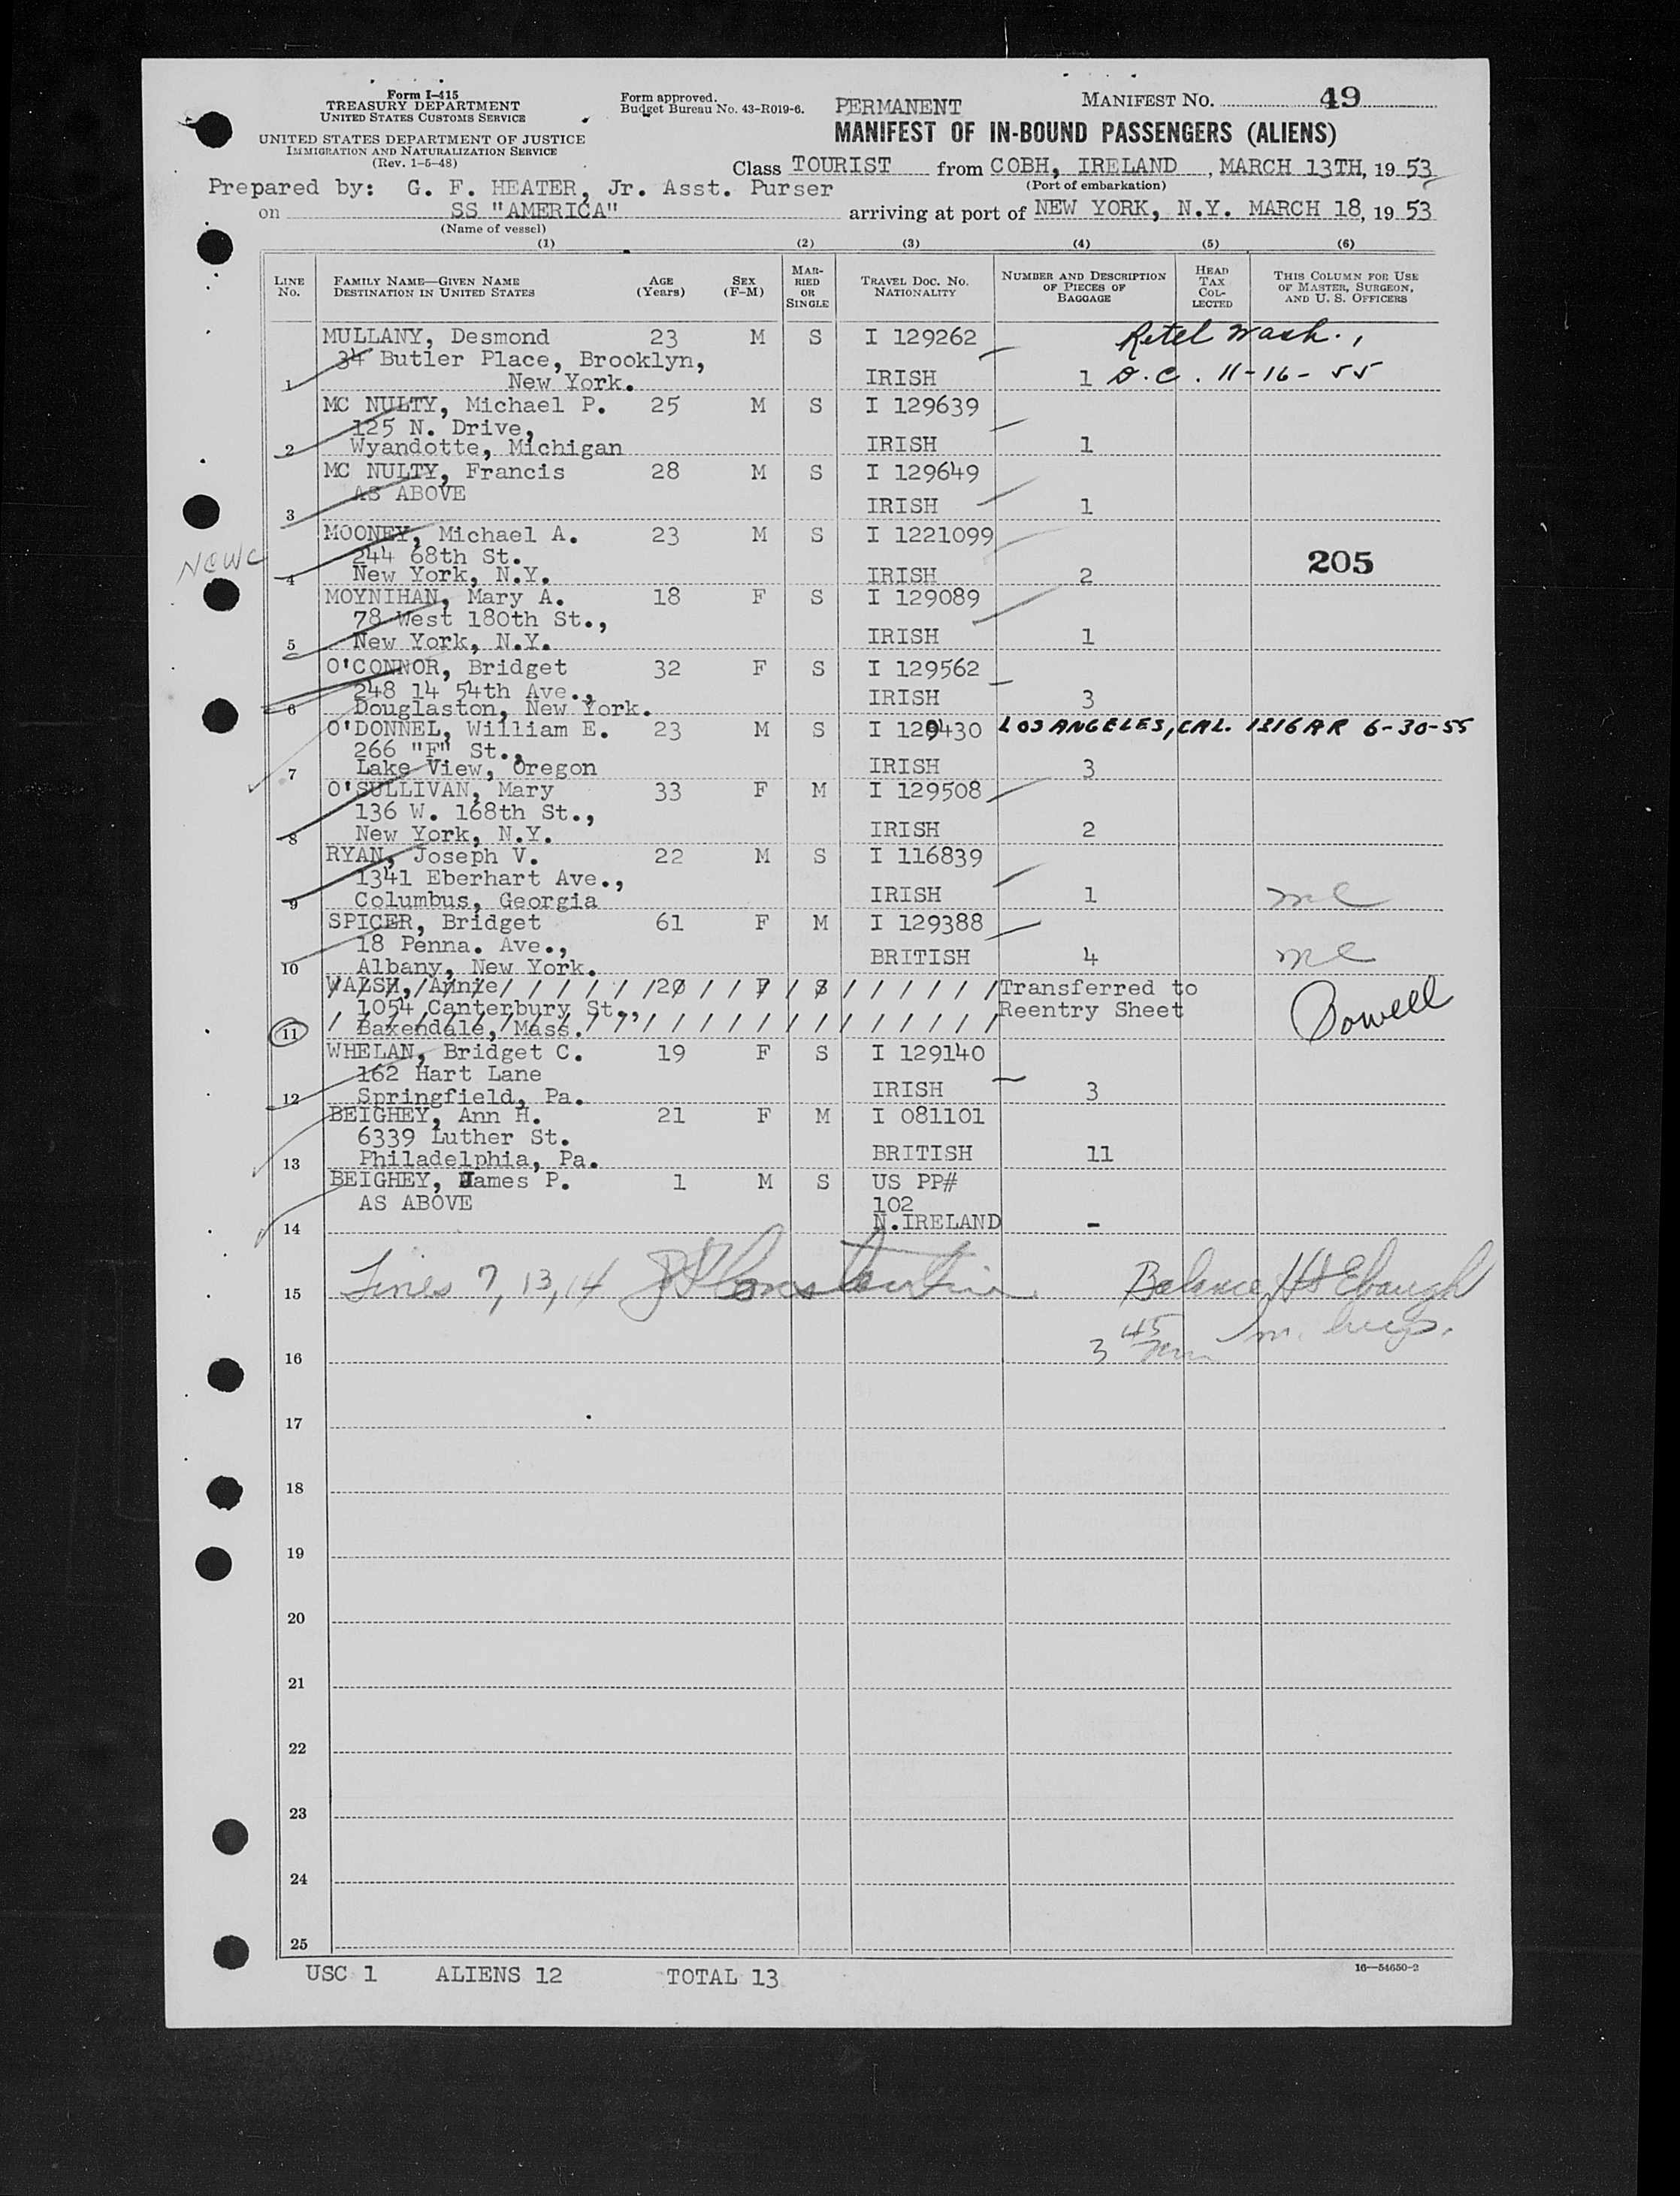 Form I-415
TREASURY DEPARTMENT
UNITED STATES CUSTOMS SERVICE
UNITED STATES DEPARTMENT OF JUSTICE
IMMIGRATION AND NATURALIZATION SERVICE
(Rev. 1-5-48)
Form approved.
Budget Bureau No. 43-R019-6.
PERMANENT
MANIFEST No. 49
MANIFEST OF IN-BOUND PASSENGERS (ALIENS)
Class TOURIST from COBH, IRELAND, MARCH 13TH, 1953
(Port of embarkation)
Prepared by: G. F. HEATER, Jr. Asst. Purser
on SS "AMERICA" arriving at port of NEW YORK, N.Y. MARCH 18, 1953
(Name of vessel)
(1) (2) (3) (4) (5) (6)
LINE No. FAMILY NAME—GIVEN NAME DESTINATION IN UNITED STATES AGE (Years) SEX (F-M) MARRIED OR SINGLE TRAVEL DOC. NO. NATIONALITY NUMBER AND DESCRIPTION OF PIECES OF BAGGAGE HEAD TAX COLLECTED THIS COLUMN FOR USE OF MASTER, SURGEON, AND U. S. OFFICERS
MULLANY, Desmond 23 M S I 129262 Retel Wash.,
34 Butler Place, Brooklyn,
1 New York. IRISH 1 D.C. 11-16-55
MC NULTY, Michael P. 25 M S I 129639
125 N. Drive,
2 Wyandotte, Michigan IRISH 1
MC NULTY, Francis 28 M S I 129649
AS ABOVE
3 IRISH 1
MOONEY, Michael A. 23 M S I 1221099
NCWC 244 68th St. 205
4 New York, N.Y. IRISH 2
MOYNIHAN, Mary A. 18 F S I 129089
78 West 180th St.,
5 New York, N.Y. IRISH 1
O'CONNOR, Bridget 32 F S I 129562
248 14 54th Ave., IRISH 3
6 Douglaston, New York.
O'DONNEL, William E. 23 M S I 129430 LOS ANGELES, CAL. 1316AR 6-30-55
266 "F" St.,
7 Lake View, Oregon IRISH 3
O'SULLIVAN, Mary 33 F M I 129508
136 W. 168th St.,
8 New York, N.Y. IRISH 2
RYAN, Joseph V. 22 M S I 116839
1341 Eberhart Ave.,
9 Columbus, Georgia IRISH 1 mc
SPICER, Bridget 61 F M I 129388
18 Penna. Ave.,
10 Albany, New York. BRITISH 4 mc
WALSH, Annie 20 F S Transferred to
1054 Canterbury St., Reentry Sheet Powell
11 Baxendale, Mass.
WHELAN, Bridget C. 19 F S I 129140
162 Hart Lane
12 Springfield, Pa. IRISH 3
BEIGHEY, Ann H. 21 F M I 081101
6339 Luther St.
13 Philadelphia, Pa. BRITISH 11
BEIGHEY, James P. 1 M S US PP#
AS ABOVE 102
14 N.IRELAND -
15 Lines 7, 13, 14 Balance HS Ebaugh
3 45
16
17
18
19
20
21
22
23
24
25
USC 1 ALIENS 12 TOTAL 13
16—54650-2